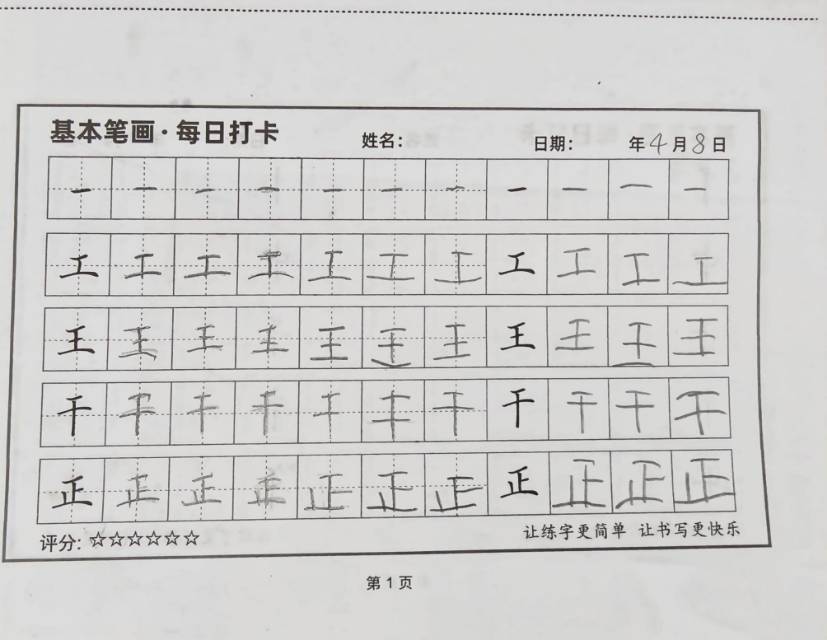 基本笔画·每日打卡 姓名: 日期: 年4月8日
一 一 一 一 一 一 一 一 一 一 一
工 工 工 工 工 工 工 工 工 工 工
王 王 王 王 王 王 王 王 王 王 王
干 干 干 干 干 干 干 干 干 干 干
正 正 正 正 正 正 正 正 正 正 正
评分: ☆☆☆☆☆☆ 让练字更简单 让书写更快乐
第1页